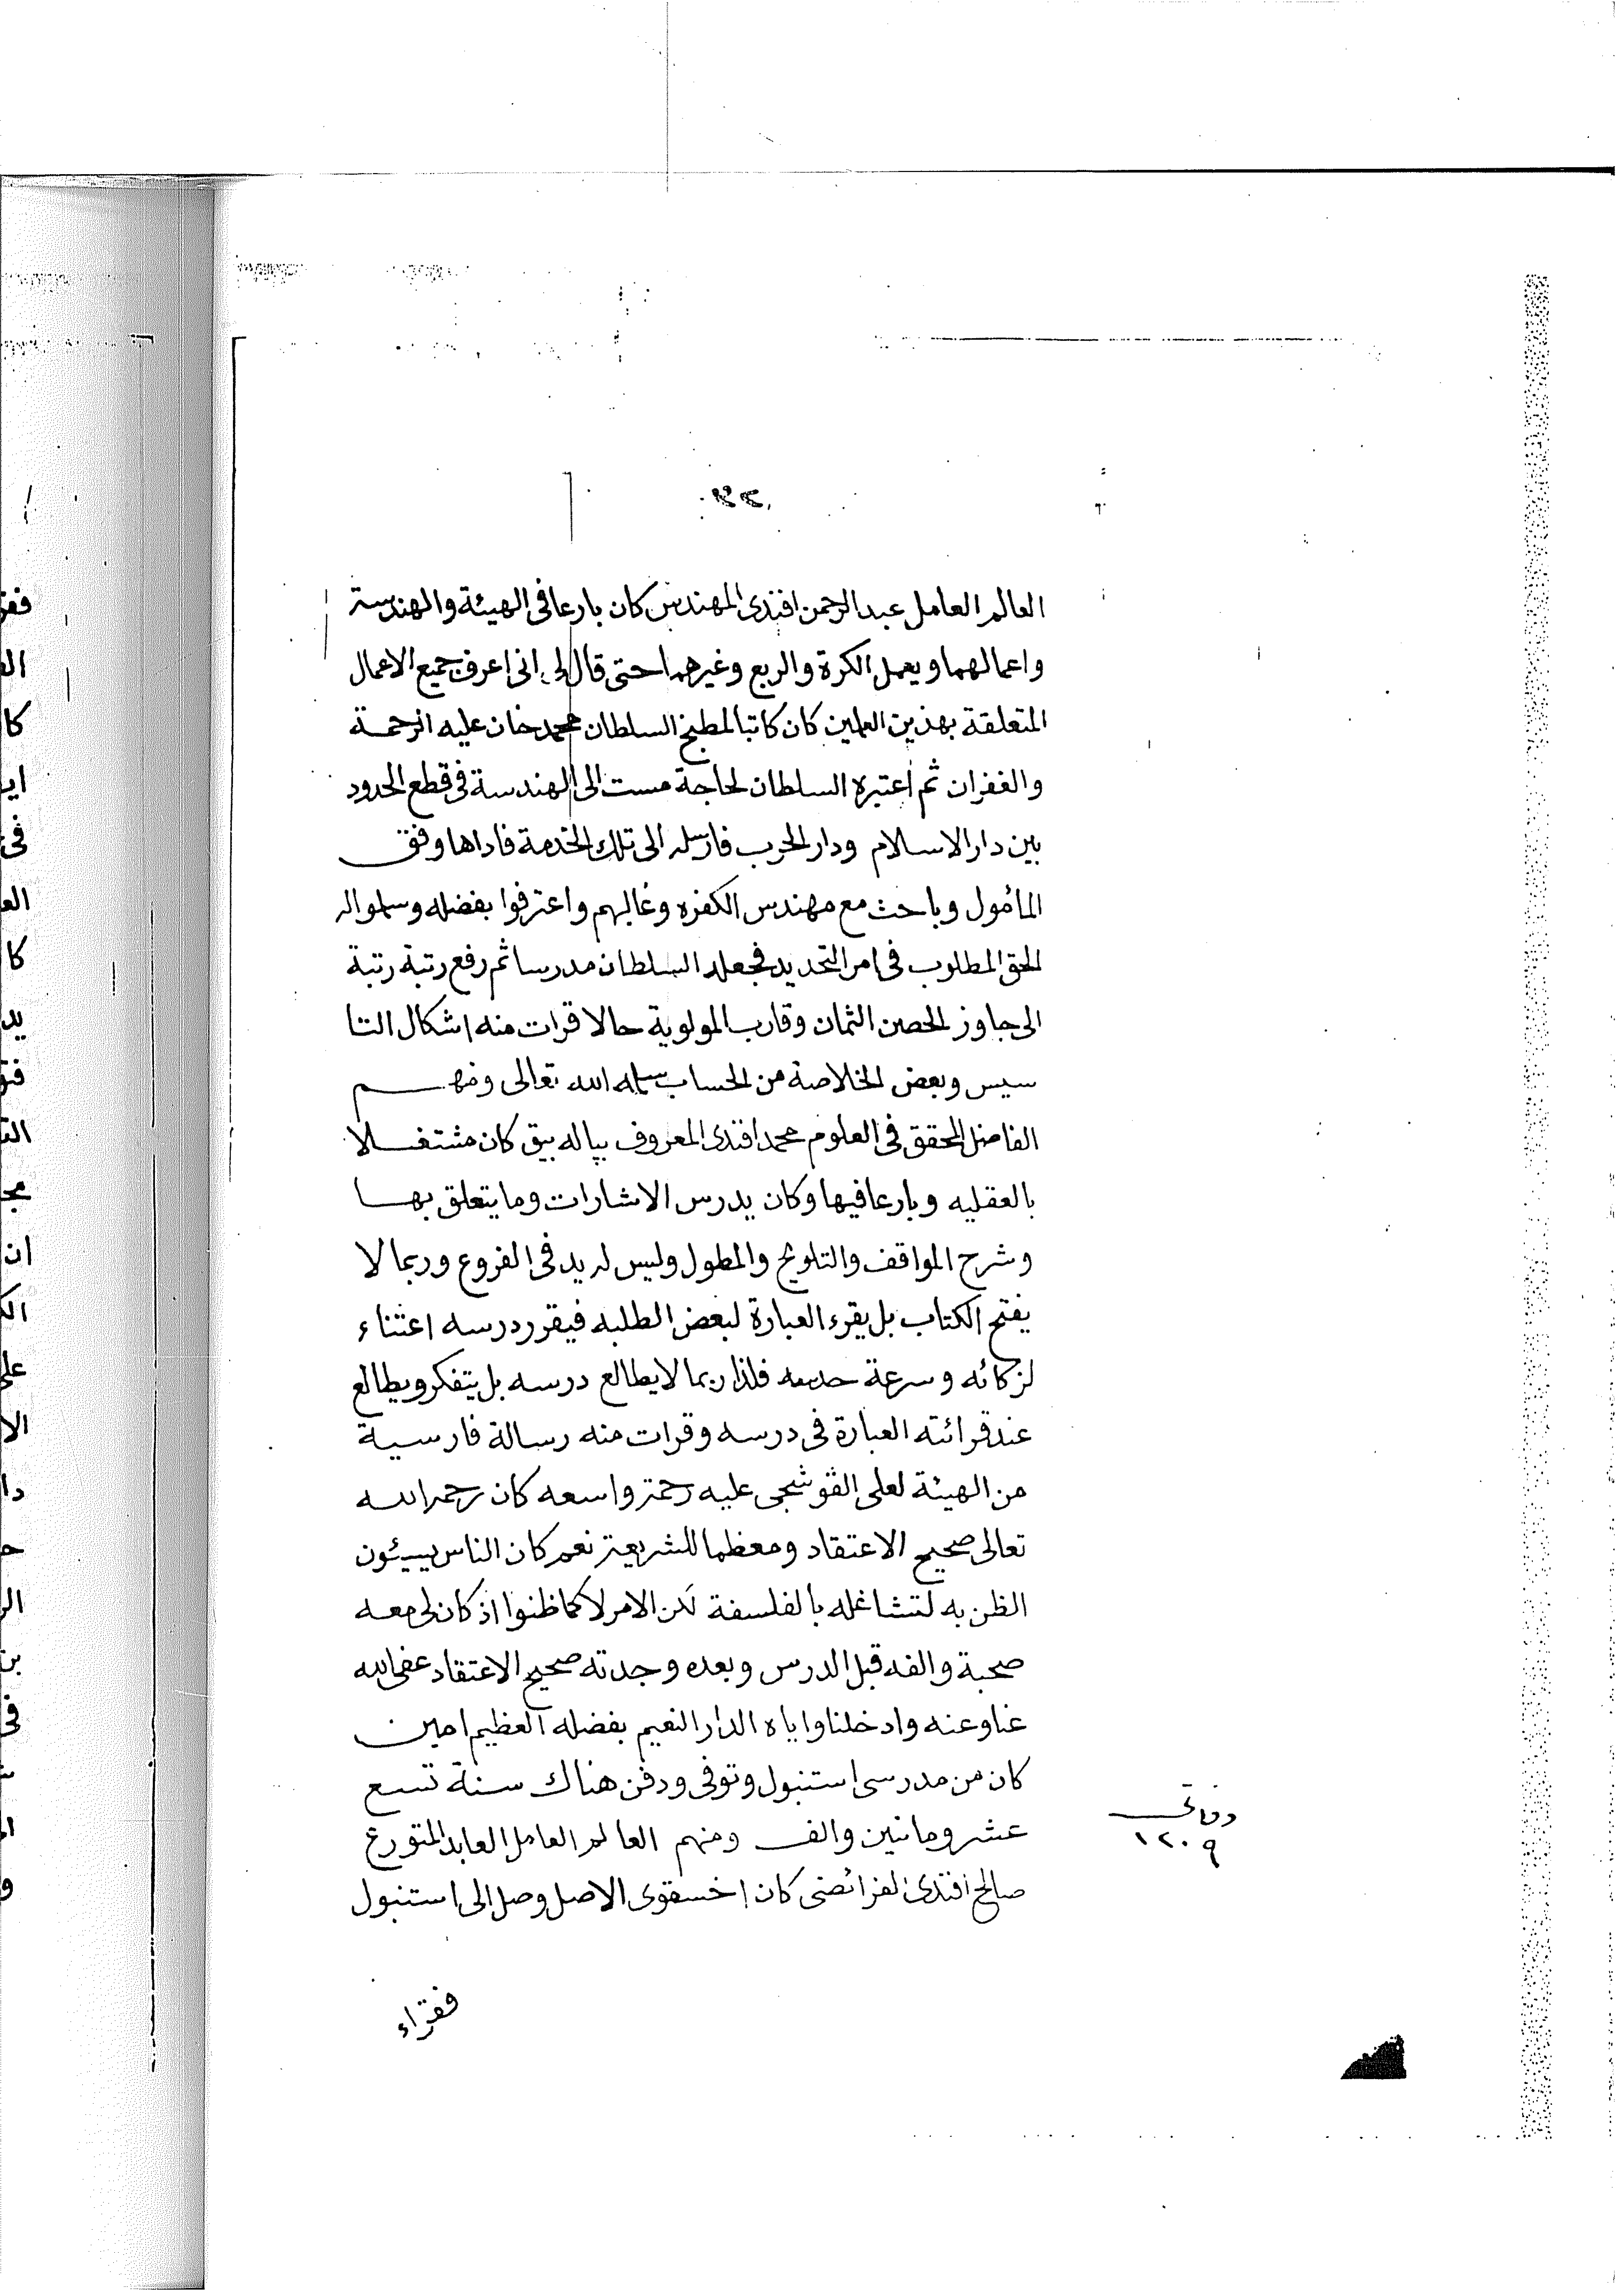 العالم العامل عبد الرحمن افندى المهندس كان بارعا فى الهيئة والهندسة
واعمالهما ويعمل الكرة والربع وغيرهما حتى قال لى انى اعرف جميع الاعمال
المتعلقة بهذين العلمين كان كاتبا لمطبخ السلطان محمد خان عليه الرحمة
والغفران ثم اعتبره السلطان لحاجة مست الى الهندسة فى قطع الحدود
بين دار الاسلام ودار الحرب فارسله الى تلك الخدمة فاداها وفق
المأمول وباحث مع مهندس الكفره وغالبهم واعترفوا بفضله وسلموا له
الحق المطلوب فى امر التحديد فجعله السلطان مدرسا ثم رفع رتبة رتبة
الى جاوز الحصن الثمان وقارب المولوية حالا قرات منه اشكال التا
سيس وبعض الخلاصة من الحساب سلمه الله تعالى ومنهم
الفاضل المحقق فى العلوم محمد افندى المعروف بپاله بيق كان مشتغلا
بالعقليه وبارعا فيها وكان يدرس الاشارات وما يتعلق بها
وشرح المواقف والتلويح والمطول وليس له يد فى الفروع وربما لا
يفتح الكتاب بل يقرء العبارة لبعض الطلبه فيقرر درسه اعتناء
لزكائه وسرعة حدسه فلذا ربما لا يطالع درسه بل يتفكر ويطالع
عند قرائته العبارة فى درسه وقرات منه رسالة فارسية
من الهيئة لعلى القوشجى عليه رحمة واسعه كان رحمه الله
تعالى صحيح الاعتقاد ومعظما للشريعة نعم كان الناس يسيئون
الظن به لتشاغله بالفلسفة لكن الامر لا كما ظنوا اذ كان لى معه
صحبة والفه قبل الدرس وبعده وجدته صحيح الاعتقاد عفى الله
عنا وعنه وادخلنا واياه الدار النعيم بفضله العظيم امين
كان من مدرسى استنبول وتوفى ودفن هناك سنة تسع
عشر وماتين والف ومنهم العالم العامل العابد المتورع
صالح افندى الفرائضى كان اخسقوى الاصل وصل الى استنبول
١٢٠٩
فقراء